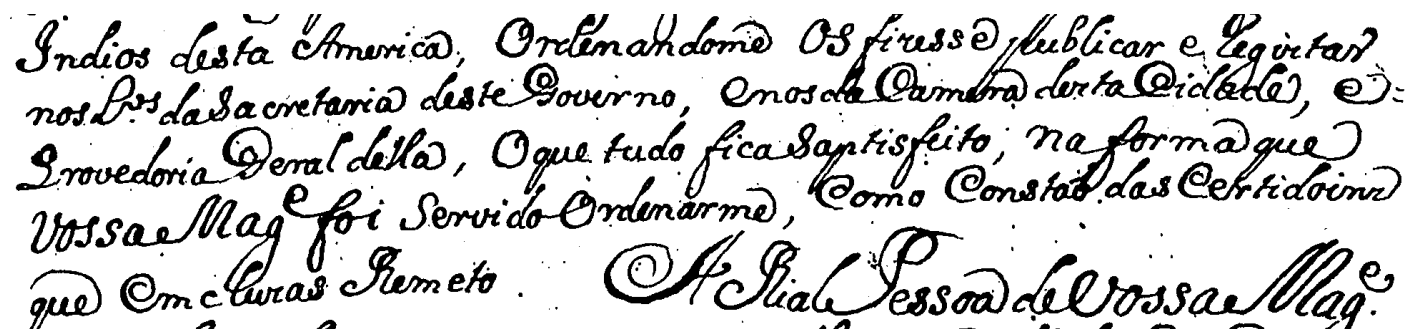 Indios desta America, Ordenandome Os fizesse publicar e Registar
nos L.os da Sacretaria deste Governo, e nos da Camara desta Cidade, e=
Provedoria Geral della, O que tudo fica Saptisfeito, na forma que
Vossa Mag.e foi Servido Ordenarme, Como Constaõ das Certidoins
que Emcluzas Remeto. A Rial Pessoa de Vossa Mag.e